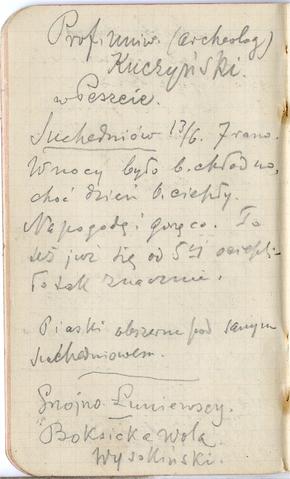 Prof. uniw. (archeolog)
Kuczyński.
w Peszcie.
Suchedniów 13/6. 7 rano.
W nocy było b. chłodno,
choć dzień b. ciepły.
Na pogodę i gorąco. To
też już się od 5tej ociepli-
ło tak znacznie.
Piaski obszerne pod samym
Suchedniowem.
Gnojno Łuniewscy.
Boksicka Wola
Wysokiński.